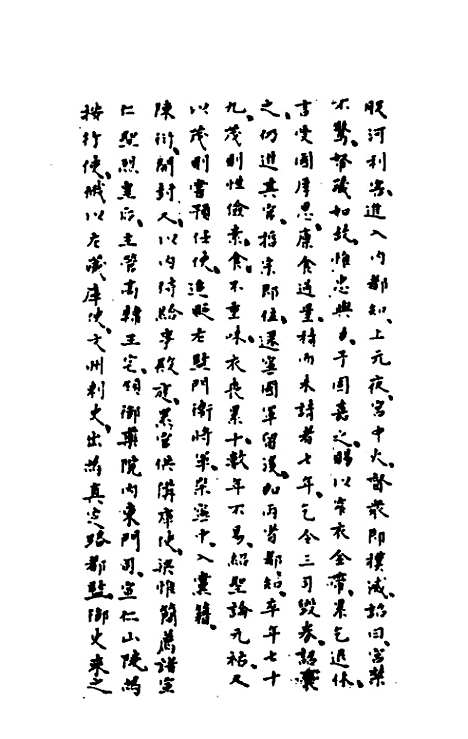 股河利害進入内都知上元夜宮中火督衆即撲滅詔曰宮禁
不驚帑藏如故惟忠與力予固嘉之賜以窄衣金帶累乞退休
言受國厚恩廩食過量積而未請者七年乞令三司毀券詔褒
之仍進真官哲宗即位遷寧國軍留後加兩省都知卒年七十
九茂則性儉素食不重味衣裘累十數年不易紹聖論元祐又
以茂則嘗預任使追貶左監門衛將軍崇寧中入黨籍
陳衍開封人以内侍給事殿庭累官供備庫使梁惟簡薦諸宣
仁聖烈皇后主管高韓王宅領御藥院内東門司宣仁山陵爲
按行使俄以左藏庫使文州刺史出爲真定路都監御史來之